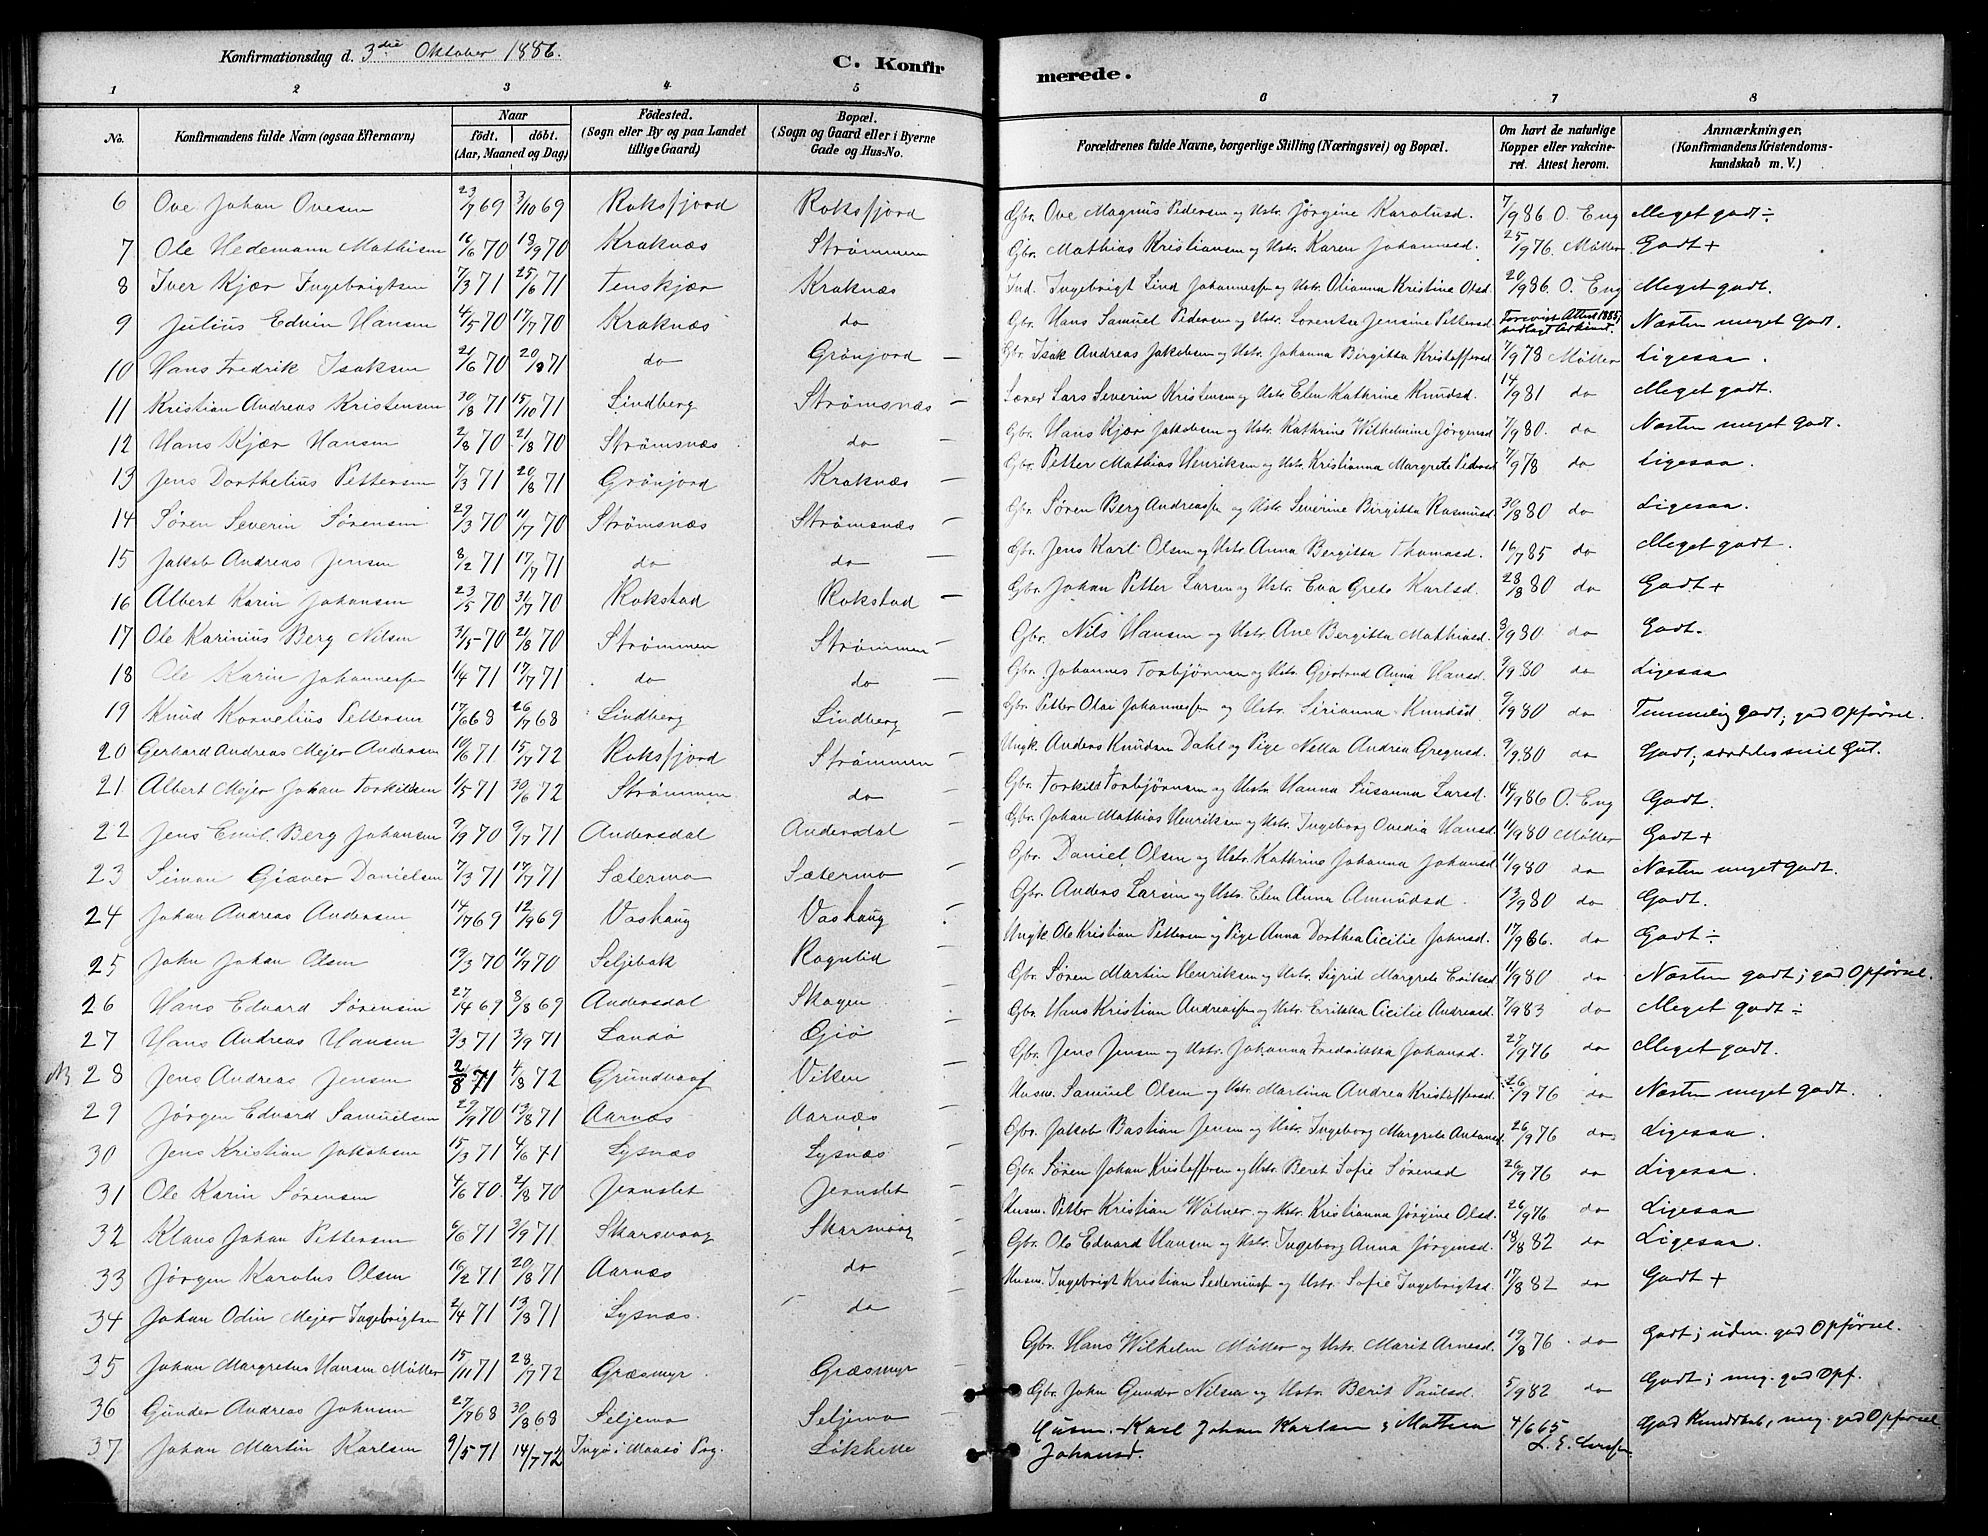 Konfirmationsdag d. 3die Oktober 1886.
C. Konfirmerede.
1 2 3 4 5 6 7 8
No.
Konfirmandens fulde Navn (ogsaa Efternavn)
Naar
födt. döbt.
(Aar, Maaned og Dag)
Födested.
(Sogn eller By og paa Landet
tillige Gaard)
Bopæl.
(Sogn og Gaard eller i Byerne
Gade og Hus-No.
Forældrenes fulde Navne, borgerlige Stilling (Næringsvei) og Bopæl.
Om havt de naturlige
Kopper eller vakcine-
ret. Attest herom.
Anmærkninger,
(Konfirmandens Kristendoms-
kundskab m. V.)
6 Ove Johan Ovesen 23/7 69 3/10 69 Roksfjord Roksfjord Gbr. Ove Magnus Pedersen og Hstr. Jörgine Karolusd. 7/9 86 O. Eng Meget godt ÷
7 Ole Hedemann Mathisen 16/6 70 18/9 70 Kraknæs Strömmen Gbr. Mathias Kristiansen og Hstr. Karen Johannesd. 25/9 76 Möller Godt +
8 Iver Kjær Ingebrigtsen 7/3 71 25/6 71 Tenskjær Kraknæs Ind. Ingebrigt Lind Johannessen og Hstr. Olianna Kristine Olsd. 20/9 86. O. Eng Meget godt.
9 Julius Edvin Hansen 4/5 70 17/7 70 Kraknæs do Gbr. Hans Samuel Pedersen og Hstr. Lorentse Jensine Pettersd. Forevist Attest 1885, Næsten meget godt.
10 Hans Fredrik Isaksen 21/6 70 20/8 71 do Grönjord – Gbr. Isak Andreas Jakobsen og Hstr. Johanna Birgitta Kristoffersd. 7/9 78 Möller Ligesaa.
11 Kristian Andreas Kristensen 30/8 71 15/10 71 Lindberg Strömsnæs – Lærer Lars Severin Kristensen og Hstr. Elen Kathrine Knudsd. 14/9 81 do Meget godt.
12 Hans Kjær Hansen 2/8 70 21/8 70 Strömsnæs. do – Gbr. Hans Kjær Jakobsen og Hstr. Kathrine Wilhelmine Jörgensd. 7/9 80. do Næsten meget godt.
13 Jens Dorthelius Pettersen 7/3 71 20/8 71 Grönjord Kraknæs – Gbr. Petter Mathias Henriksen og Hstr. Kristianna Margrete Pedersd. 7/9 78 do Ligesaa.
14 Sören Severin Sörensen 29/3 70 11/7 70 Strömsnæs Strömsnæs – Gbr. Sören Berg Andreassen og Hstr. Severine Birgitta Rasmusd. 30/8 80 do Ligesaa.
15 Jakob Andreas Jensen 8/2 71 17/7 71 do do – Gbr. Jens Karl Olsen og Hstr. Anna Bergitta Thomasd. 16/7 85 do Meget godt.
16 Albert Karin Johansen 23/5 70 31/7 70 Rokstad Rokstad – Gbr. Johan Petter Larsen og Hstr. Eva Grete Karlsd. 28/8 80 do Godt +
17 Ole Karinius Berg Nilsen 31/5 70 21/8 70 Strömmen Strömmen – Gbr. Nils Hansen og Hstr. Ane Bergitta Mathiasd. 8/9 80 do Godt.
18 Ole Karin Johannessen 1/4 71 17/7 71 do do – Gbr. Johannes Torbjörnsen og Hstr. Gjertrud Anna Hansd. 9/9 80 do Ligesaa
19 Knud Kornelius Pettersen 17/6 68 26/7 68 Lindberg Lindberg – Gbr. Petter Olai Johannessen og Hstr. Sirianna Knudsd. 9/9 80 do Temmelig godt; god Opförsel.
20 Gerhard Andreas Mejer Andersen 10/6 71 15/7 72 Roksfjord Strömmen – Ungk. Anders Knudsen Dahl og Pige Netta Andrea Gregusd. 9/9 80 do Godt; særdeles snil Gut.
21 Albert Mejer Johan Torkildsen 1/5 71 30/6 72 Strömmen do – Gbr. Torkild Torbjörnsen og Hstr. Hanna Susanna Larsd. 14/9 86 O. Eng Godt.
22 Jens Emil Berg Johansen 9/9 70 9/7 71 Andersdal Andersdal – Gbr. Johan Mathias Henriksen og Hstr. Ingeborg Ovedia Hansd. 11/9 80 Möller Godt +
23 Simon Giæver Danielsen 7/3 71 17/7 71 Sætermo Sætermo – Gbr. Daniel Olsen og Hstr. Kathrine Johanna Johansd. 11/9 80 do Næsten meget godt.
24 Johan Andreas Andersen 14/7 69 12/9 69 Vashaug Vashaug Gbr. Anders Larsen og Hstr. Elen Anna Amundsd. 13/9 80 do Godt.
25 John Johan Olsen 19/3 70 11/7 70 Seljebak Rognlid Ungk. Ole Kristian Pettersen og Pige Anna Dorthea Cicilie Johnsd. 17/9 86. do Godt ÷
26 Hans Edvard Sörensen 27/4 69 8/8 69 Andersdal Skogen – Gbr. Sören Martin Henriksen og Hstr. Sigrid Margrete Eriksd. 11/9 80 do Næsten godt; god Opförsel.
27 Hans Andreas Hansen 3/3 71 3/9 71 Sandö Gjö – Gbr. Hans Kristian Andreassen og Hstr. Errikka Cicilie Andreasd. 7/9 83 do Meget godt ÷
NB 28 Jens Andreas Jensen 2/8 71 4/8 72 Grundvaag Viken – Gbr. Jens Jensen og Hstr. Johanna Fredrikka Johansd. 27/9 76 do Meget godt.
29 Jörgen Edvard Samuelsen 29/9 70 13/8 71 Aarnæs Aarnæs – Husm. Samuel Olsen og Hstr. Martina Andrea Kristoffersd. 26/9 76 do Næsten meget godt.
30 Jens Kristian Jakobsen 15/3 71 4/6 71 Lysnæs Lysnæs – Gbr. Jakob Bastian Jensen og Hstr. Ingeborg Margrete Antonsd. 26/9 76 do Ligesaa.
31 Ole Karin Sörensen 4/6 70. 2/8 70 Jernslet Jernslet – Gbr. Sören Johan Kristoffersen og Hstr. Beret Sofie Sörensd 26/9 76 do Ligesaa.
32 Klaus Johan Pettersen 6/6 71 3/9 71 Skarsvaag Skarsvaag Husm. Petter Kristian Wölner og Hstr. Kristianna Jörgine Olsd. 26/9 76 do Ligesaa
33 Jörgen Karolus Olsen 16/2 71 20/8 71 Aarnæs do Gbr. Ole Edvard Hansen og Hstr. Ingeborg Anna Jörgensd. 18/8 82 do Ligesaa.
34 Johan Odin Mejer Ingebrigtsen 2/4 71 13/8 71 Lysnæs. do Husm. Ingebrigt Kristian Sedeniussen og Hstr. Sofie Ingebrigtsd. 17/8 82 do Godt +
35 Johan Margretus Hansen Möller 15/11 71 28/7 72 Græsmyr. Græsmyr Gbr. Hans Wilhelm Möller og Hstr. Marit Arnesd. 19/8 76 do Godt; udm. god Opförsel.
36 Gunder Andreas Johnsen 27/7 68 30/8 68 Seljemo Seljemo Gbr. John Gunder Nilsen og Hstr. Berit Paulsd. 5/9 82 do Godt; meg. god Opf.
37 Johan Martin Karlsen 9/5 71 14/7 72 Ingö i Maasö Prg. Lökhelle Husm. Karl Johan Karlsen & Mathea 4/6 65 God Kundskab, meg. god Opförsel
Johansd.